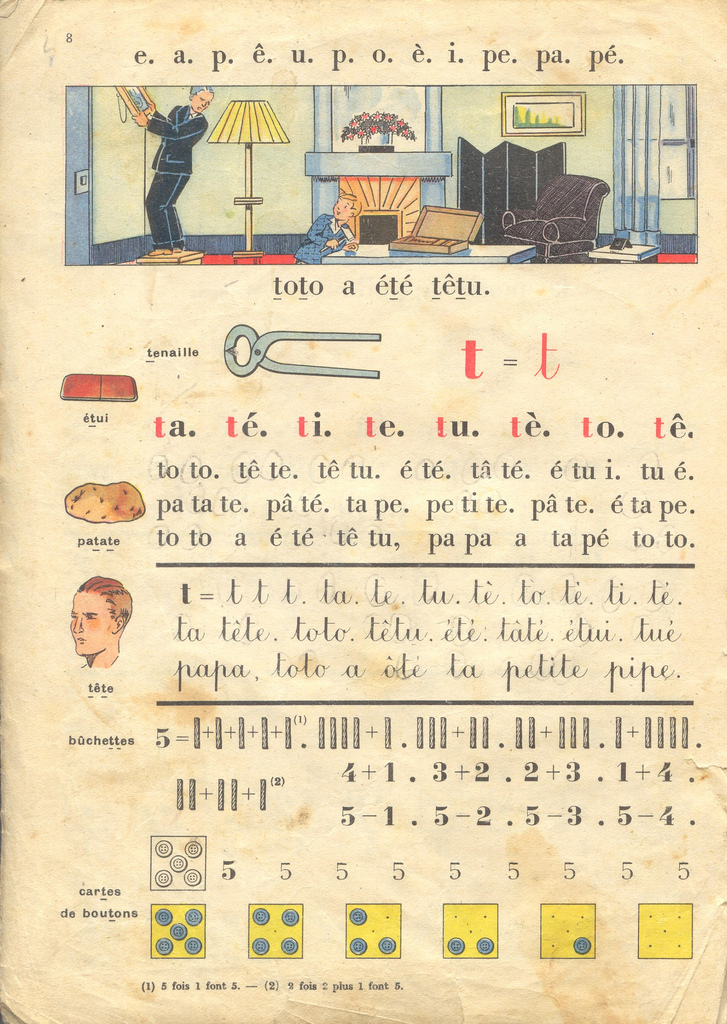 8
e. a. p. ê. u. p. o. è. i. pe. pa. pé.
toto a été têtu.
tenaille
t = t
étui
ta. té. ti. te. tu. tè. to. tê.
to to. tê te. tê tu. é té. tâ té. é tu i. tu é.
pa ta te. pâ té. ta pe. pe ti te. pâ te. é ta pe.
patate
to to a é té tê tu, pa pa a ta pé to to.
t = t t t. ta. te. tu. tè. to. tê. ti. té.
ta tête. toto. têtu. été. tâté. étui. tué
papa, toto a ôté ta petite pipe.
tête
bûchettes
5 = |+|+|+|+|(1). ||||+|. |||+||. ||+|||. |+||||.
4+1. 3+2. 2+3. 1+4.
||+||+|(2)
5-1. 5-2. 5-3. 5-4.
5 5 5 5 5 5 5 5 5
cartes
de boutons
(1) 5 fois 1 font 5. — (2) 2 fois 2 plus 1 font 5.